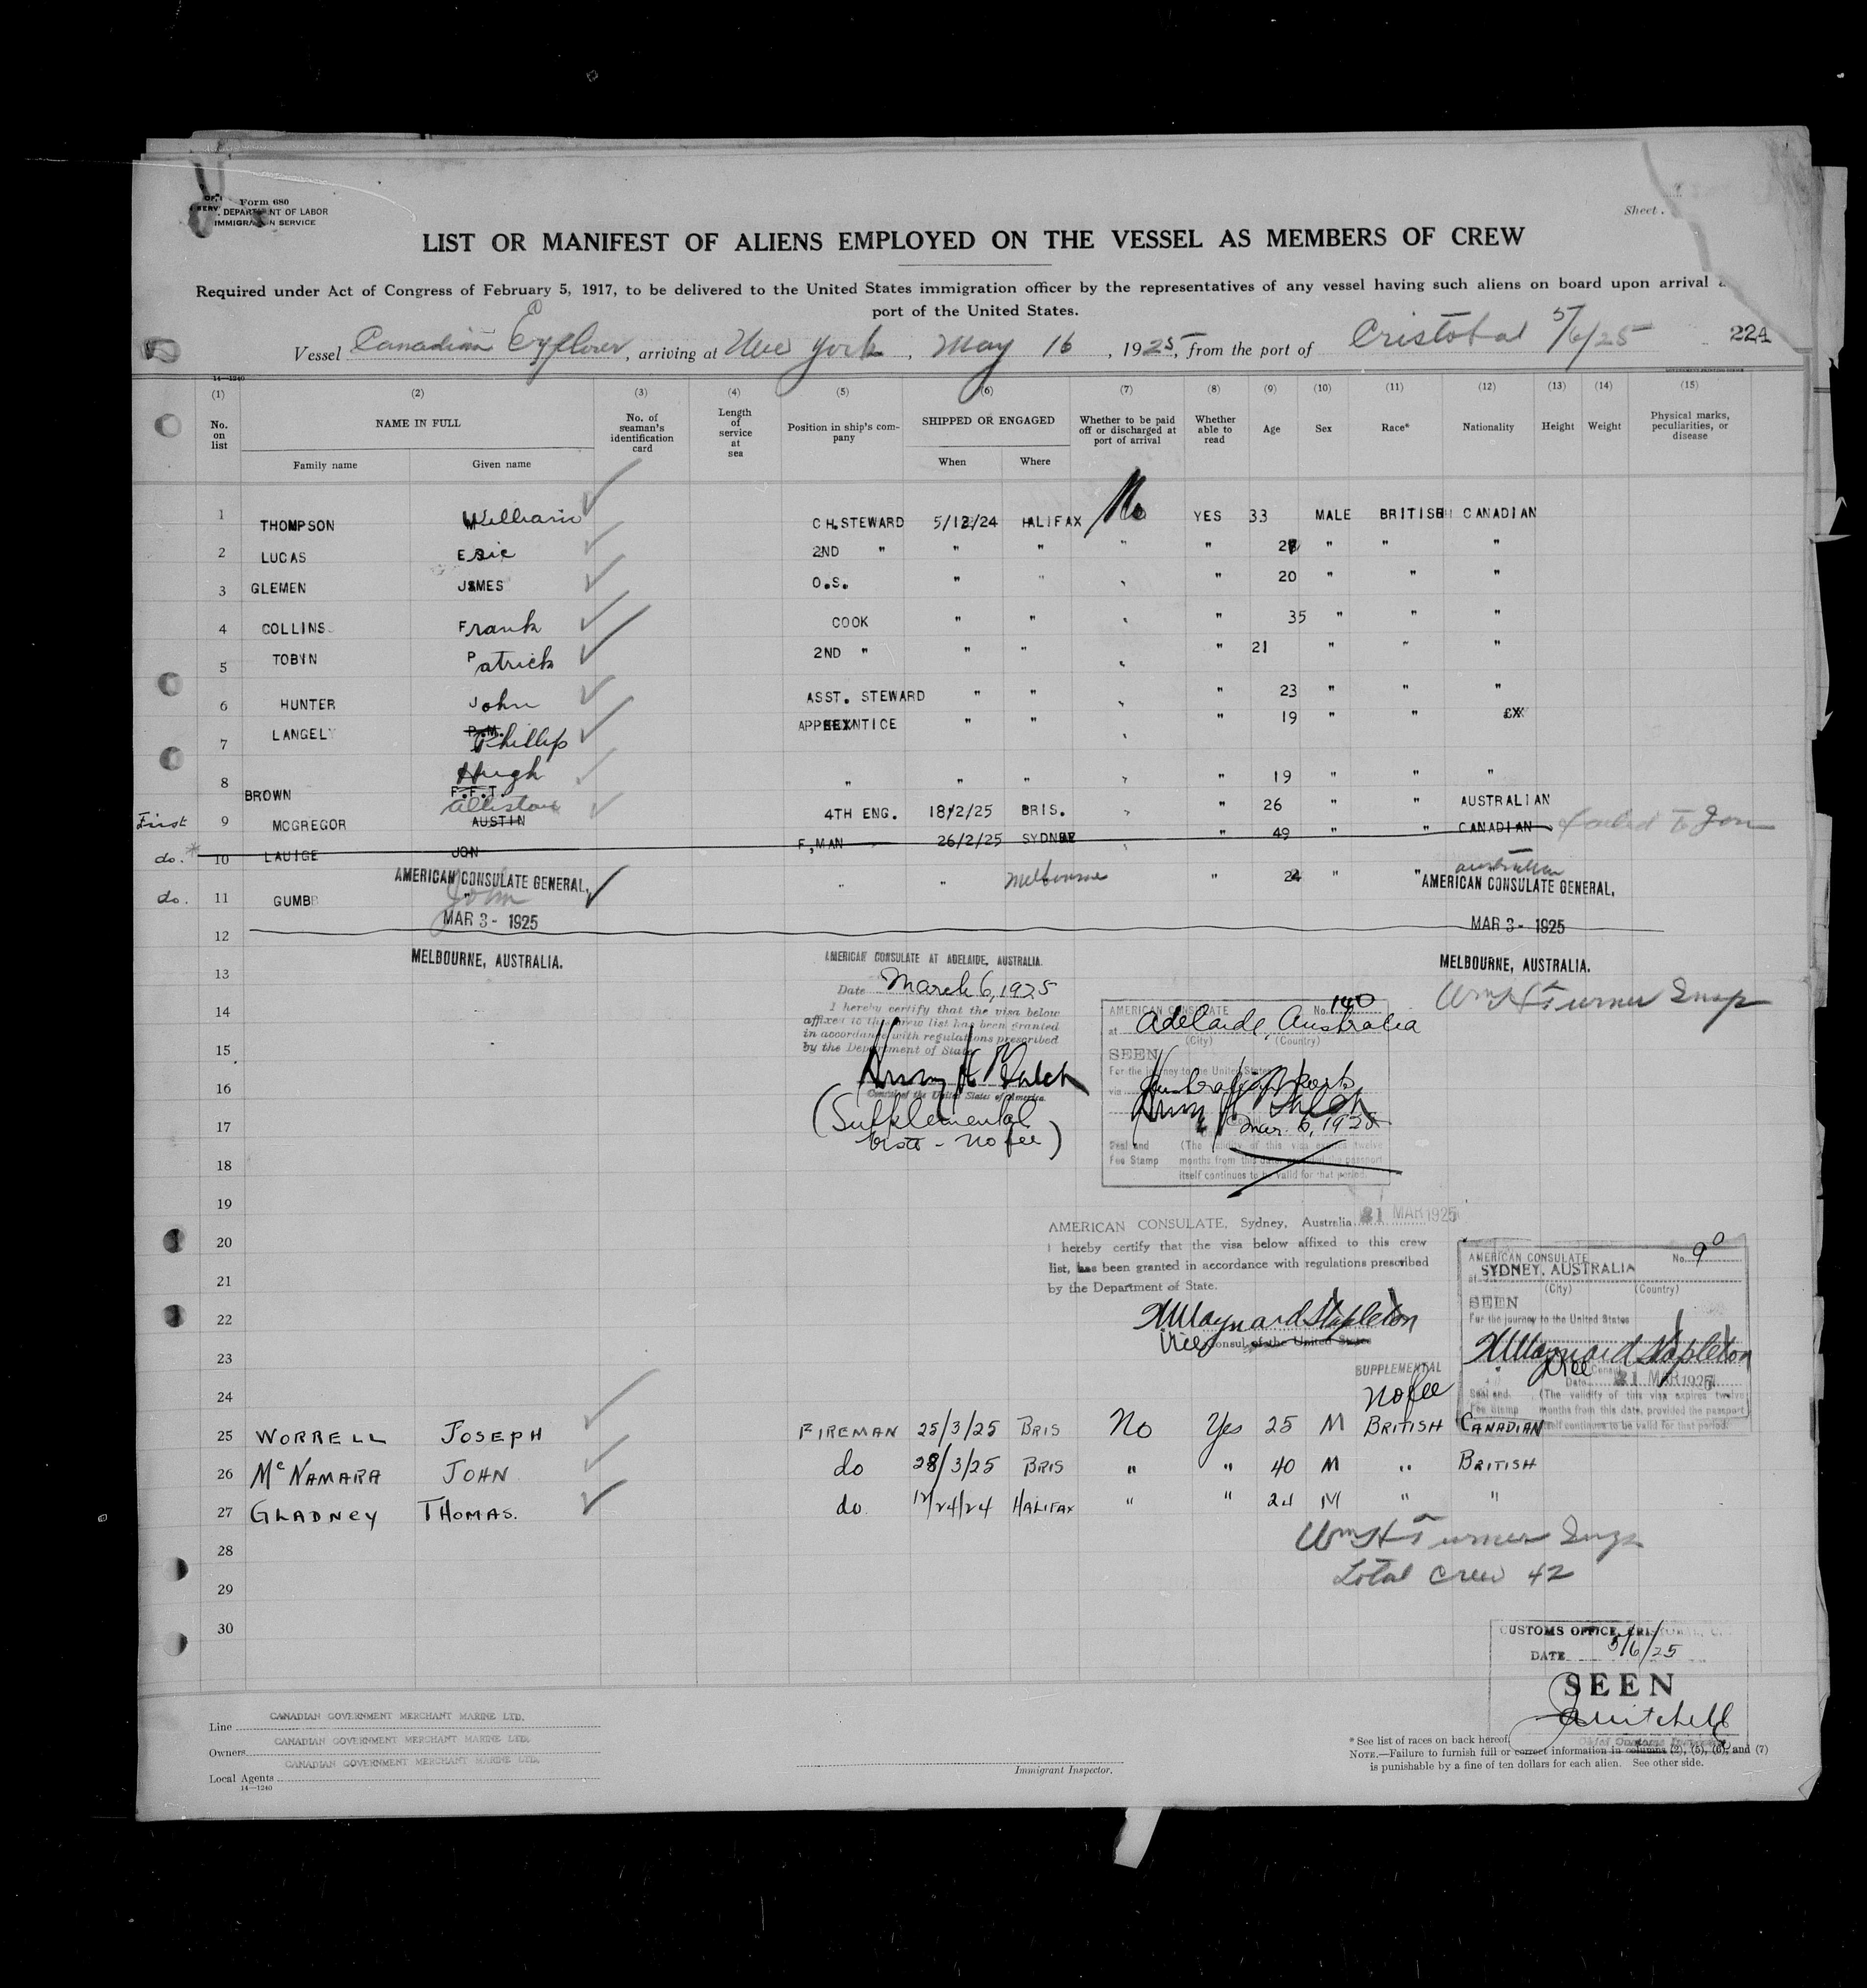 Form 680
DEPARTMENT OF LABOR
IMMIGRATION SERVICE
Sheet
LIST OR MANIFEST OF ALIENS EMPLOYED ON THE VESSEL AS MEMBERS OF CREW
Required under Act of Congress of February 5, 1917, to be delivered to the United States immigration officer by the representatives of any vessel having such aliens on board upon arrival
port of the United States.
Vessel Canadian Explorer, arriving at New York, May 16, 1925, from the port of Cristobal 5/6/25 224
14—1240
(1) (2) (3) (4) (5) (6) (7) (8) (9) (10) (11) (12) (13) (14) (15)
No. on list NAME IN FULL No. of seaman's identification card Length of service at sea Position in ship's company SHIPPED OR ENGAGED Whether to be paid off or discharged at port of arrival Whether able to read Age Sex Race* Nationality Height Weight Physical marks, peculiarities, or disease
Family name Given name When Where
1 THOMPSON William CH.STEWARD 5/12/24 HALIFAX No YES 33 MALE BRITISH CANADIAN
2 LUCAS Eric 2ND " " " " " " " "
3 GLEMEN JAMES O.S. " " " " 20 " " "
4 COLLINS Frank COOK " " " " 35 " " "
5 TOBIN Patrick 2ND " " " " " 21 " " "
6 HUNTER John ASST. STEWARD " " " " 23 " " "
7 LANGELY P.M. Phillip APPRENTICE " " " " 19 " "
8 BROWN Hugh F.F.T. " " " " " 19 " " "
First 9 MCGREGOR Allistone AUSTIN 4TH ENG. 18/2/25 BRIS. " " 26 " " AUSTRALIAN
do. * 10 LAUIGE JON F,MAN 26/2/25 SYDNEY " " 49 " " CANADIAN failed to Join
do. 11 GUMB John " " Melbourne " 24 " " australian
AMERICAN CONSULATE GENERAL, AMERICAN CONSULATE GENERAL,
MAR 3 - 1925 MAR 3 - 1925
12
MELBOURNE, AUSTRALIA. MELBOURNE, AUSTRALIA.
13
Wm H Turner Insp
AMERICAN CONSULATE AT ADELAIDE, AUSTRALIA.
Date March 6, 1925
I hereby certify that the visa below
affixed to this crew list has been granted
in accordance with regulations prescribed
by the Department of State
Consul of the United States of America.
(Supplemental
visa - no fee)
14
15
16
17
18
AMERICAN CONSULATE No. 140
at Adelaide, Australia
(City) (Country)
SEEN
For the journey to the United States
via Australian Ports
Mar. 6, 1925
Seal and Fee Stamp
(The validity of this visa expires twelve
months from this date, provided the passport
itself continues to be valid for that period.
19
20
21
22
23
24
AMERICAN CONSULATE, Sydney, Australia 21 MAR 1925
I hereby certify that the visa below affixed to this crew
list, has been granted in accordance with regulations prescribed
by the Department of State.
Maynard Stapleton
Vice Consul of the United States
SUPPLEMENTAL
No fee
AMERICAN CONSULATE No. 90
at SYDNEY, AUSTRALIA
(City) (Country)
SEEN
For the journey to the United States
Maynard Stapleton
Vice Consul
Date 21 MAR 1925
Seal and Fee Stamp
(The validity of this visa expires twelve
months from this date, provided the passport
itself continues to be valid for that period.
25 WORRELL JOSEPH FIREMAN 25/3/25 BRIS No Yes 25 M BRITISH CANADIAN
26 McNAMARA JOHN do 28/3/25 BRIS " " 40 M " BRITISH
27 GLADNEY THOMAS. do 12/24/24 HALIFAX " " 24 M " "
28
29
30
Wm H Turner Insp
Total Crew 42
CUSTOMS OFFICE, CRISTOBAL, C.
DATE 5/6/25
SEEN
Mitchell
Chief Customs Inspector
Line CANADIAN GOVERNMENT MERCHANT MARINE LTD.
Owners CANADIAN GOVERNMENT MERCHANT MARINE LTD.
Local Agents CANADIAN GOVERNMENT MERCHANT MARINE LTD.
14—1240
Immigrant Inspector.
* See list of races on back hereof.
NOTE.—Failure to furnish full or correct information in columns (2), (5), (6), and (7)
is punishable by a fine of ten dollars for each alien. See other side.